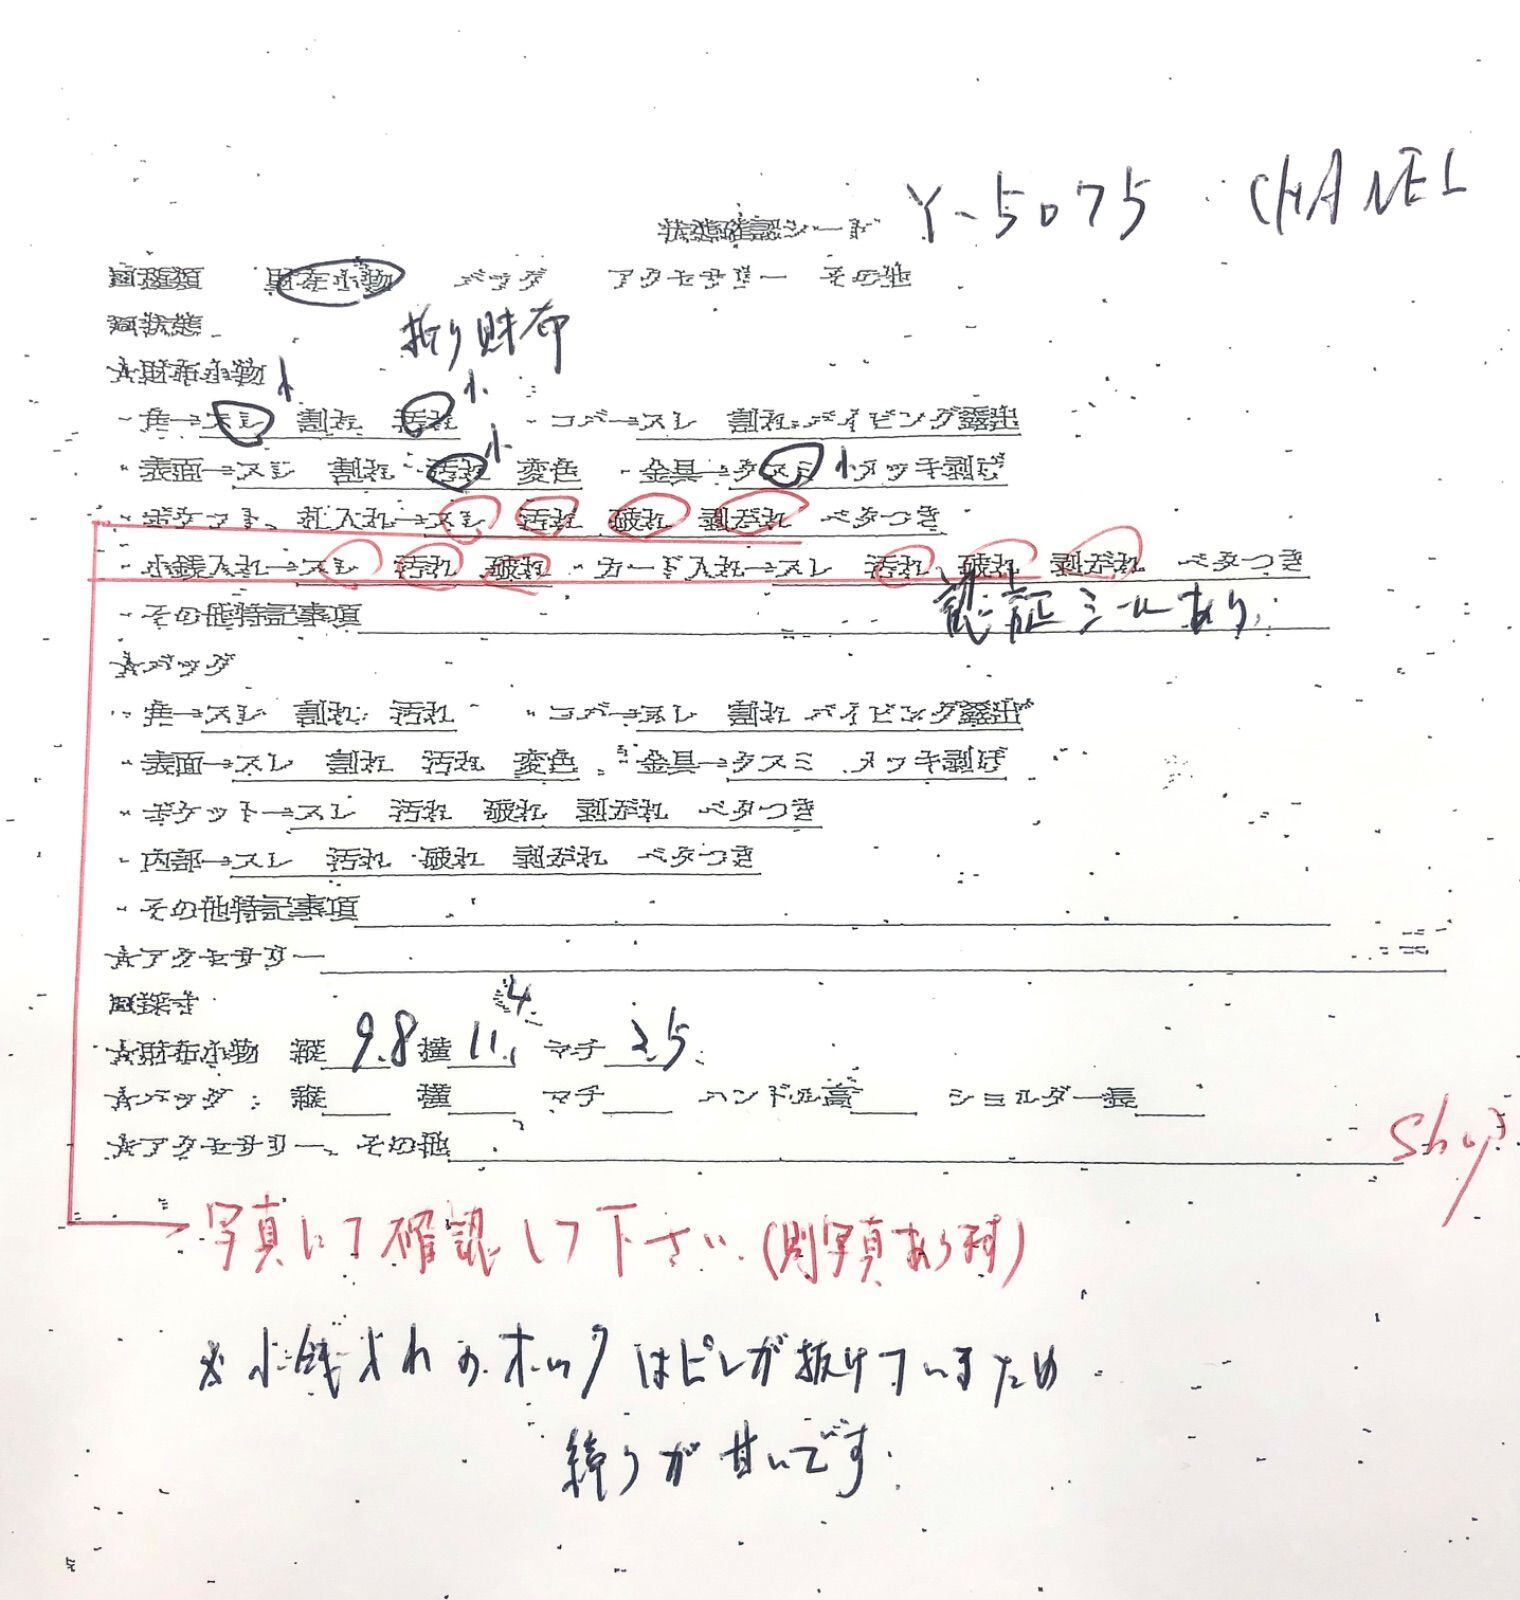 状態確認シート Y-5075 CHANEL
□種類 財布小物 バッグ アクセサリー その他
□状態 折り財布
☆財布小物 小 小
・角→スレ 割れ 汚れ ・コバ→スレ 割れ パイピング露出
・表面→スレ 割れ 汚れ 小 変色 ・金具→クスミ 小 メッキ剥げ
・ポケット、札入れ→スレ 汚れ 破れ 剥がれ ベタつき
・小銭入れ→スレ 汚れ 破れ ・カード入れ→スレ 汚れ 破れ 剥がれ ベタつき
・その他特記事項 認証シールあり
☆バッグ
・角→スレ 割れ 汚れ ・コバ→スレ 割れ パイピング露出
・表面→スレ 割れ 汚れ 変色 ・金具→クスミ メッキ剥げ
・ポケット→スレ 汚れ 破れ 剥がれ ベタつき
・内部→スレ 汚れ 破れ 剥がれ ベタつき
・その他特記事項
☆アクセサリー
□採寸
☆財布小物 縦 9.8 横 11.4 マチ 2.5
☆バッグ: 縦 横 マチ ハンドル高 ショルダー長
☆アクセサリー、その他
写真にて確認して下さい.(別写真あります)
※小銭入れのホックはピンが抜けているため
締りが甘いです.